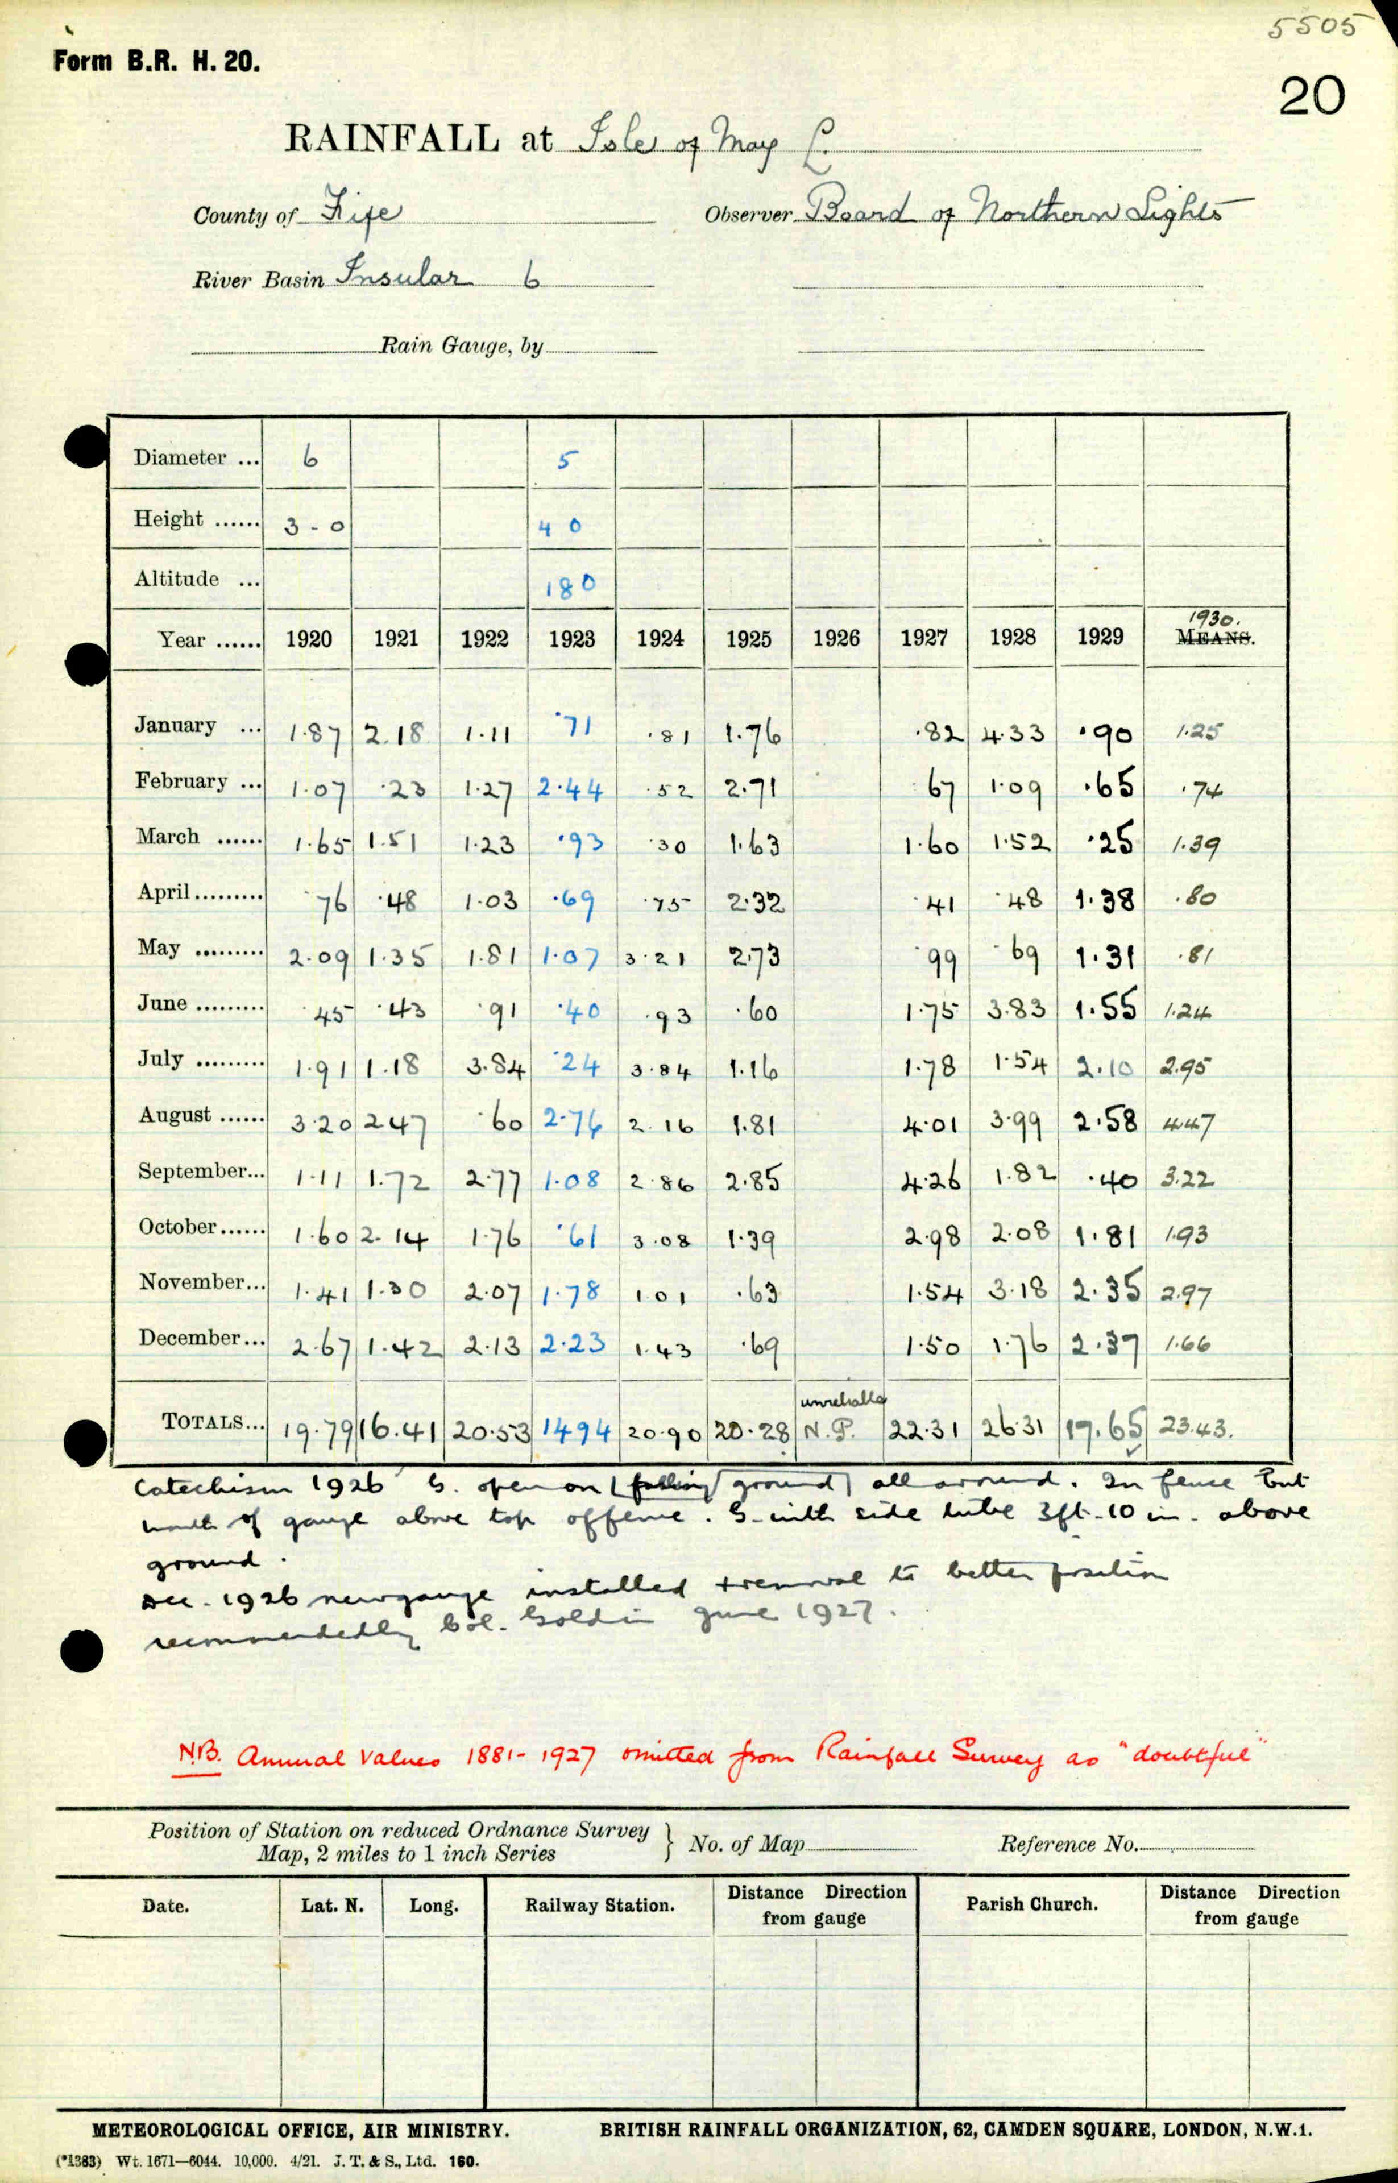 5505
Form B.R. H. 20.
20
RAINFALL at Isle of May L.
County of Fife Observer Board of Northern Lights
River Basin Insular 6
Rain Gauge, by
Diameter ... 6 5
Height ...... 3 - 0 4 0
Altitude ... 180
Year ...... 1920 1921 1922 1923 1924 1925 1926 1927 1928 1929 1930. MEANS.
January ... 1.87 2.18 1.11 .71 .81 1.76 .82 4.33 .90 1.25
February ... 1.07 .23 1.27 2.44 .52 2.71 .67 1.09 .65 .74
March ...... 1.65 1.51 1.23 .93 .30 1.63 1.60 1.52 .25 1.39
April ......... .76 .48 1.03 .69 .75 2.32 .41 .48 1.38 .80
May ......... 2.09 1.35 1.81 1.07 3.21 2.73 .99 .69 1.31 .81
June ......... .45 .43 .91 .40 .93 .60 1.75 3.83 1.55 1.24
July ......... 1.91 1.18 3.84 .24 3.84 1.16 1.78 1.54 2.10 2.95
August ...... 3.20 2.47 .60 2.76 2.16 1.81 4.01 3.99 2.58 4.47
September... 1.11 1.72 2.77 1.08 2.86 2.85 4.26 1.82 .40 3.22
October...... 1.60 2.14 1.76 .61 3.08 1.39 2.98 2.08 1.81 1.93
November... 1.41 1.30 2.07 1.78 1.01 .63 1.54 3.18 2.35 2.97
December... 2.67 1.42 2.13 2.23 1.43 .69 1.50 1.76 2.37 1.66
TOTALS... 19.79 16.41 20.53 14 94 20.90 20.28 unreliable N.P. 22.31 26.31 17.65 23.43.
Catechism 1926 G. open on falling ground all around. In fence but
mouth of gauge above top of fence. G. with side tube 3ft. 10 in. above
ground.
Dec. 1926 new gauge installed + removal to better position
recommended by Col. Gold in June 1927.
N.B. Annual Values 1881-1927 omitted from Rainfall Survey as "doubtful"
Position of Station on reduced Ordnance Survey
Map, 2 miles to 1 inch Series } No. of Map Reference No.
Date. Lat. N. Long. Railway Station. Distance Direction from gauge Parish Church. Distance Direction from gauge
METEOROLOGICAL OFFICE, AIR MINISTRY. BRITISH RAINFALL ORGANIZATION, 62, CAMDEN SQUARE, LONDON, N.W.1.
(*1383) Wt. 1671—6044. 10,000. 4/21. J. T. & S., Ltd. 160.